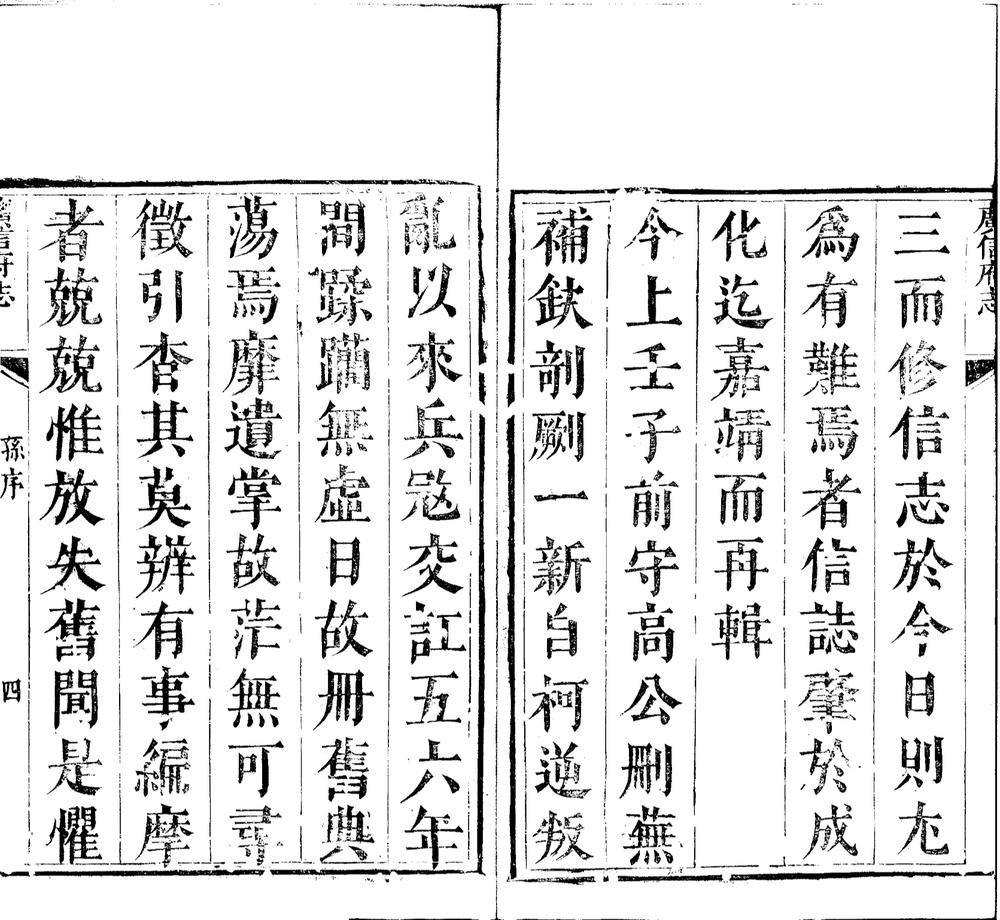 三而修信志於今日則尢
爲有難焉者信誌肇於成
化迄嘉靖而再輯
今上壬子前守高公刪蕪
補鈥剞劂一新自柯逆叛
亂以來兵宼交訌五六年
間蹂躪無虛日故冊舊典
蕩焉靡遺掌故茫無可尋
徵引杳其莫辨有事編摩
者兢兢惟放失舊聞是懼
孫序
四